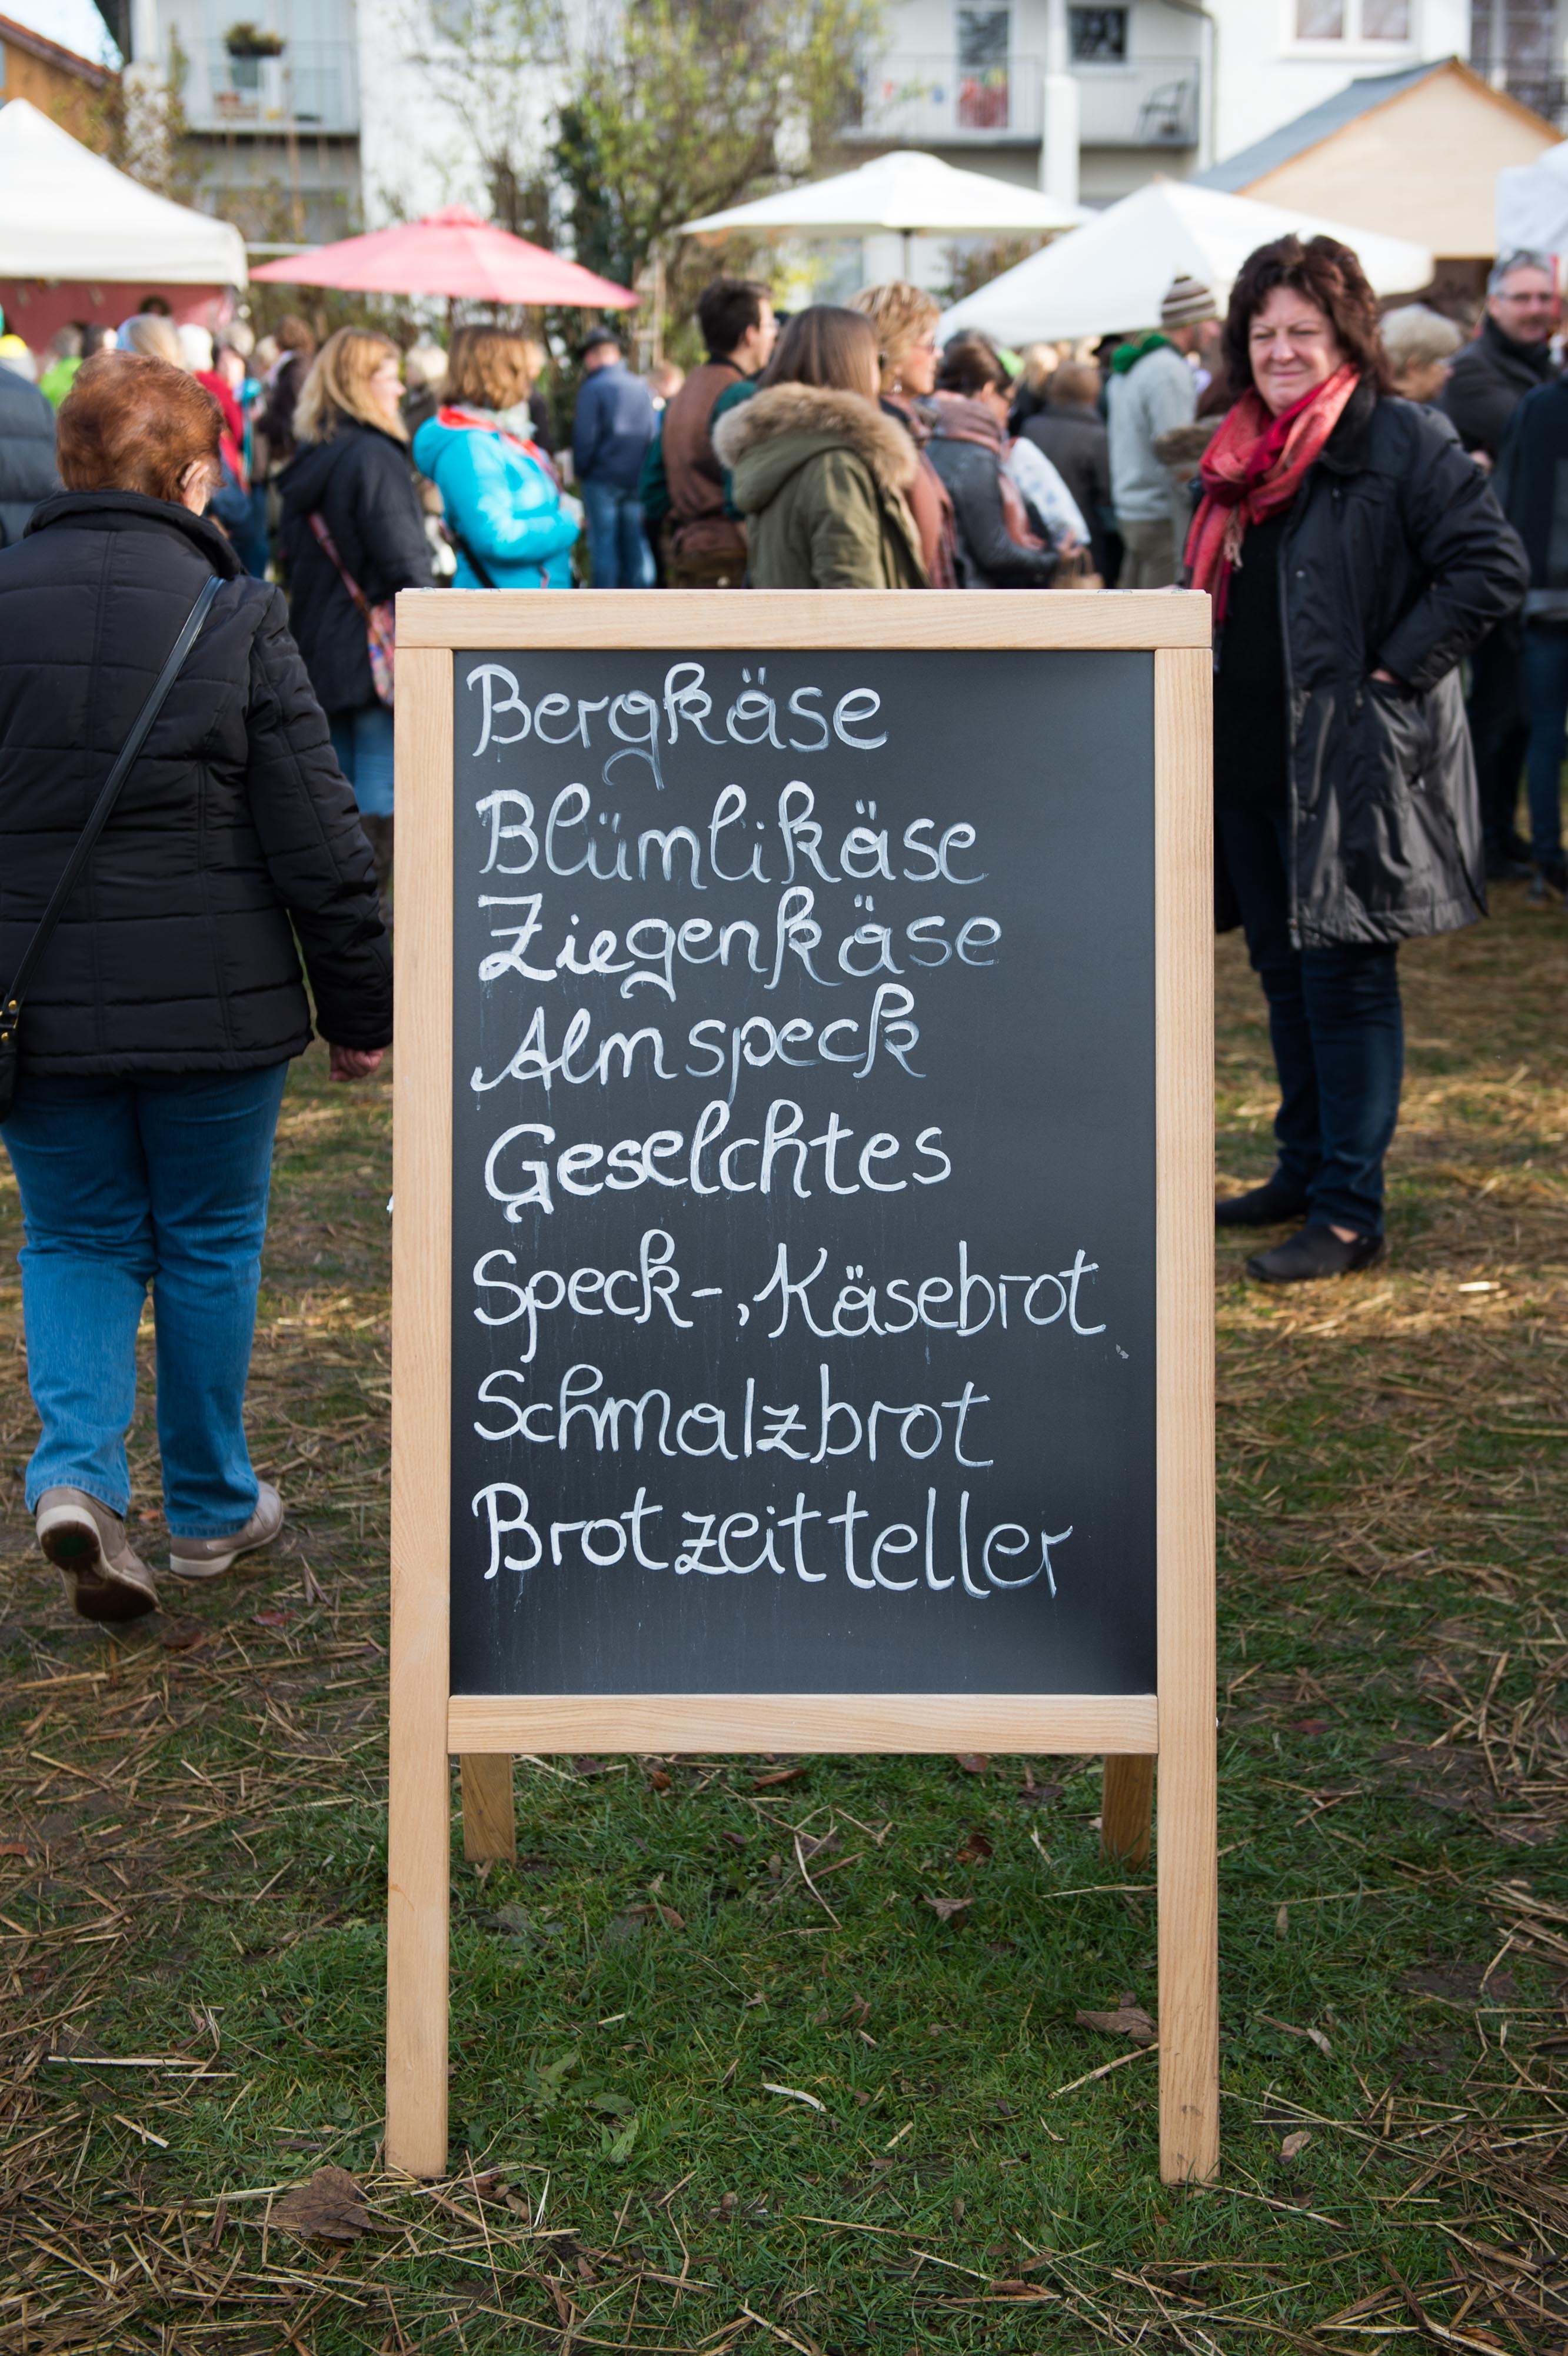 Bergkäse
Blümlikäse
Ziegenkäse
Almspeck
Geselchtes
Speck-, Käsebrot
Schmalzbrot
Brotzeitteller